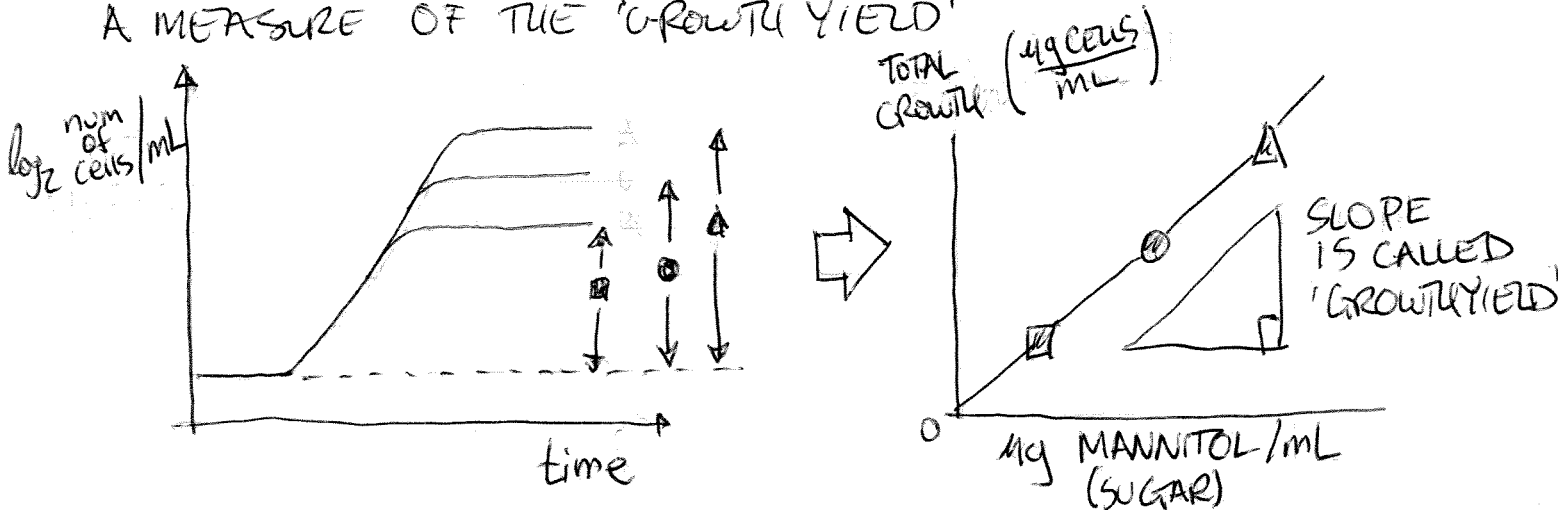 A MEASURE OF THE 'GROWTH YIELD'
log2 num of cells/mL
time
TOTAL GROWTH (µg CELLS/mL)
SLOPE
IS CALLED
'GROWTH YIELD'
0
µg MANNITOL/mL
(SUGAR)